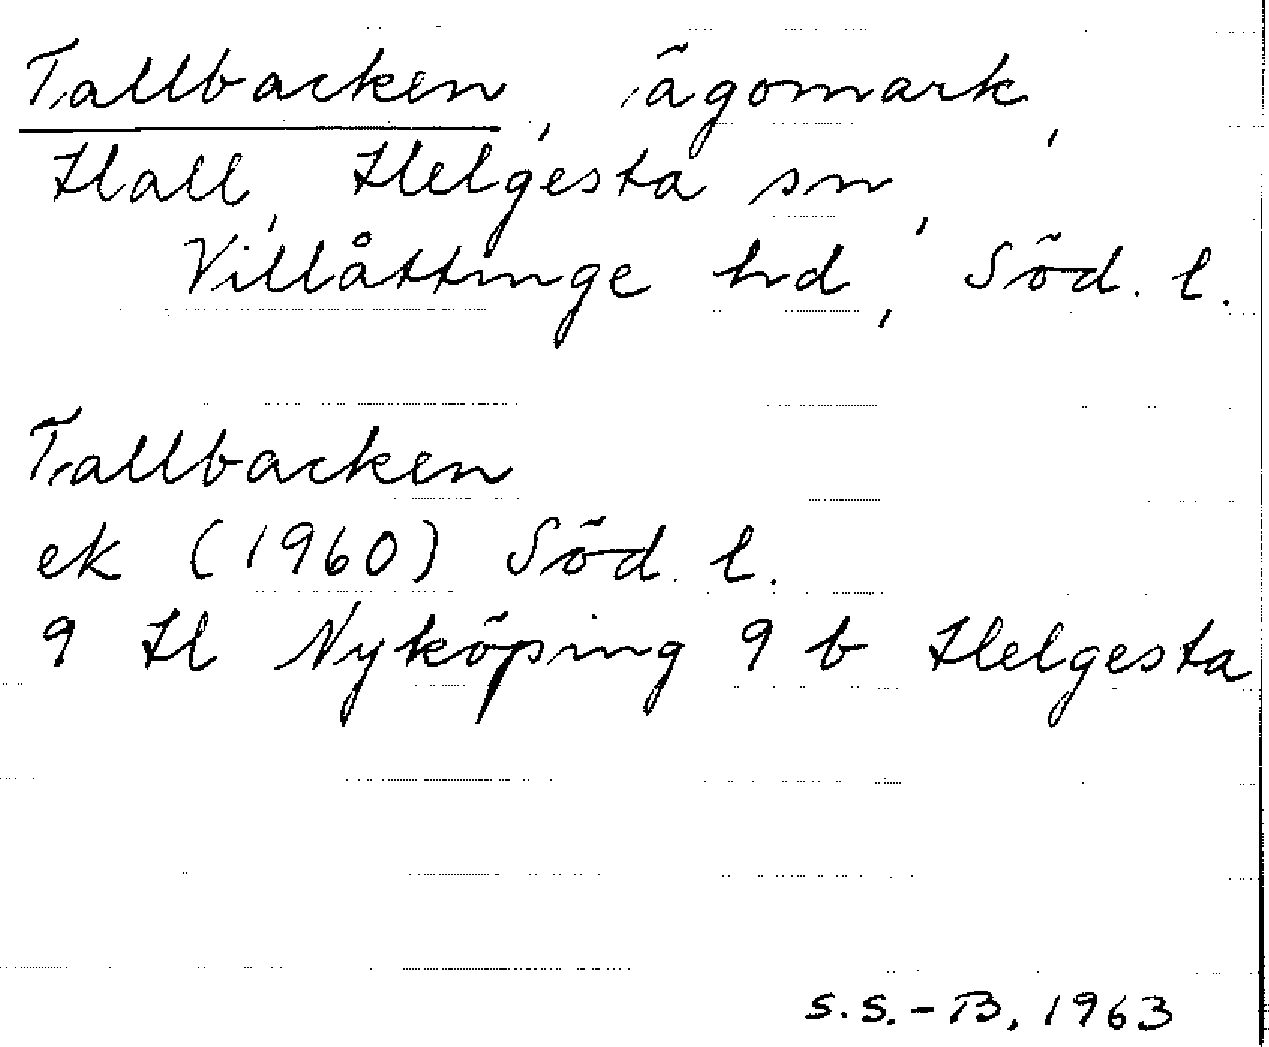 Tallbacken, ägomark,
Hall, Helgesta sn,
Villåttinge hd, Söd. l.
Tallbacken
ek (1960) Söd. l.
9 H Nyköping 9 b Helgesta
S.S.-B. 1963